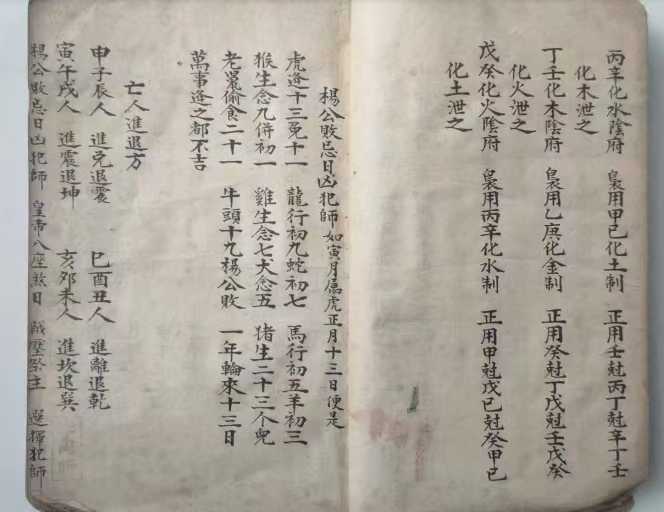 丙辛化水陰府 裊用甲己化土制 正用壬尅丙丁尅辛丁壬
化木泄之
丁壬化木陰府 裊用乙庚化金制 正用癸尅丁戊尅壬戊癸
化火泄之
戊癸化火陰府 裊用丙辛化水制 正用甲尅戊己尅癸甲己
化土泄之
楊公敗忌日凶犯師如寅月屬虎正月十三日便是
虎逢十三兎十一 龍行初九蛇初七 馬行初五羊初三
猴生念九併初一 雞生念七犬念五 猪生二十三个兒
老鼠偷食二十一 牛頭十九楊公敗 一年輪來十三日
萬事逢之都不吉
亡人進退方
申子辰人 進兎退震 巳酉丑人 進離退乾
寅午戌人 進震退坤 亥卯未人 進坎退巽
楊公敗忌日凶犯師 皇帝八座煞日 壓祭主 選擇犯師